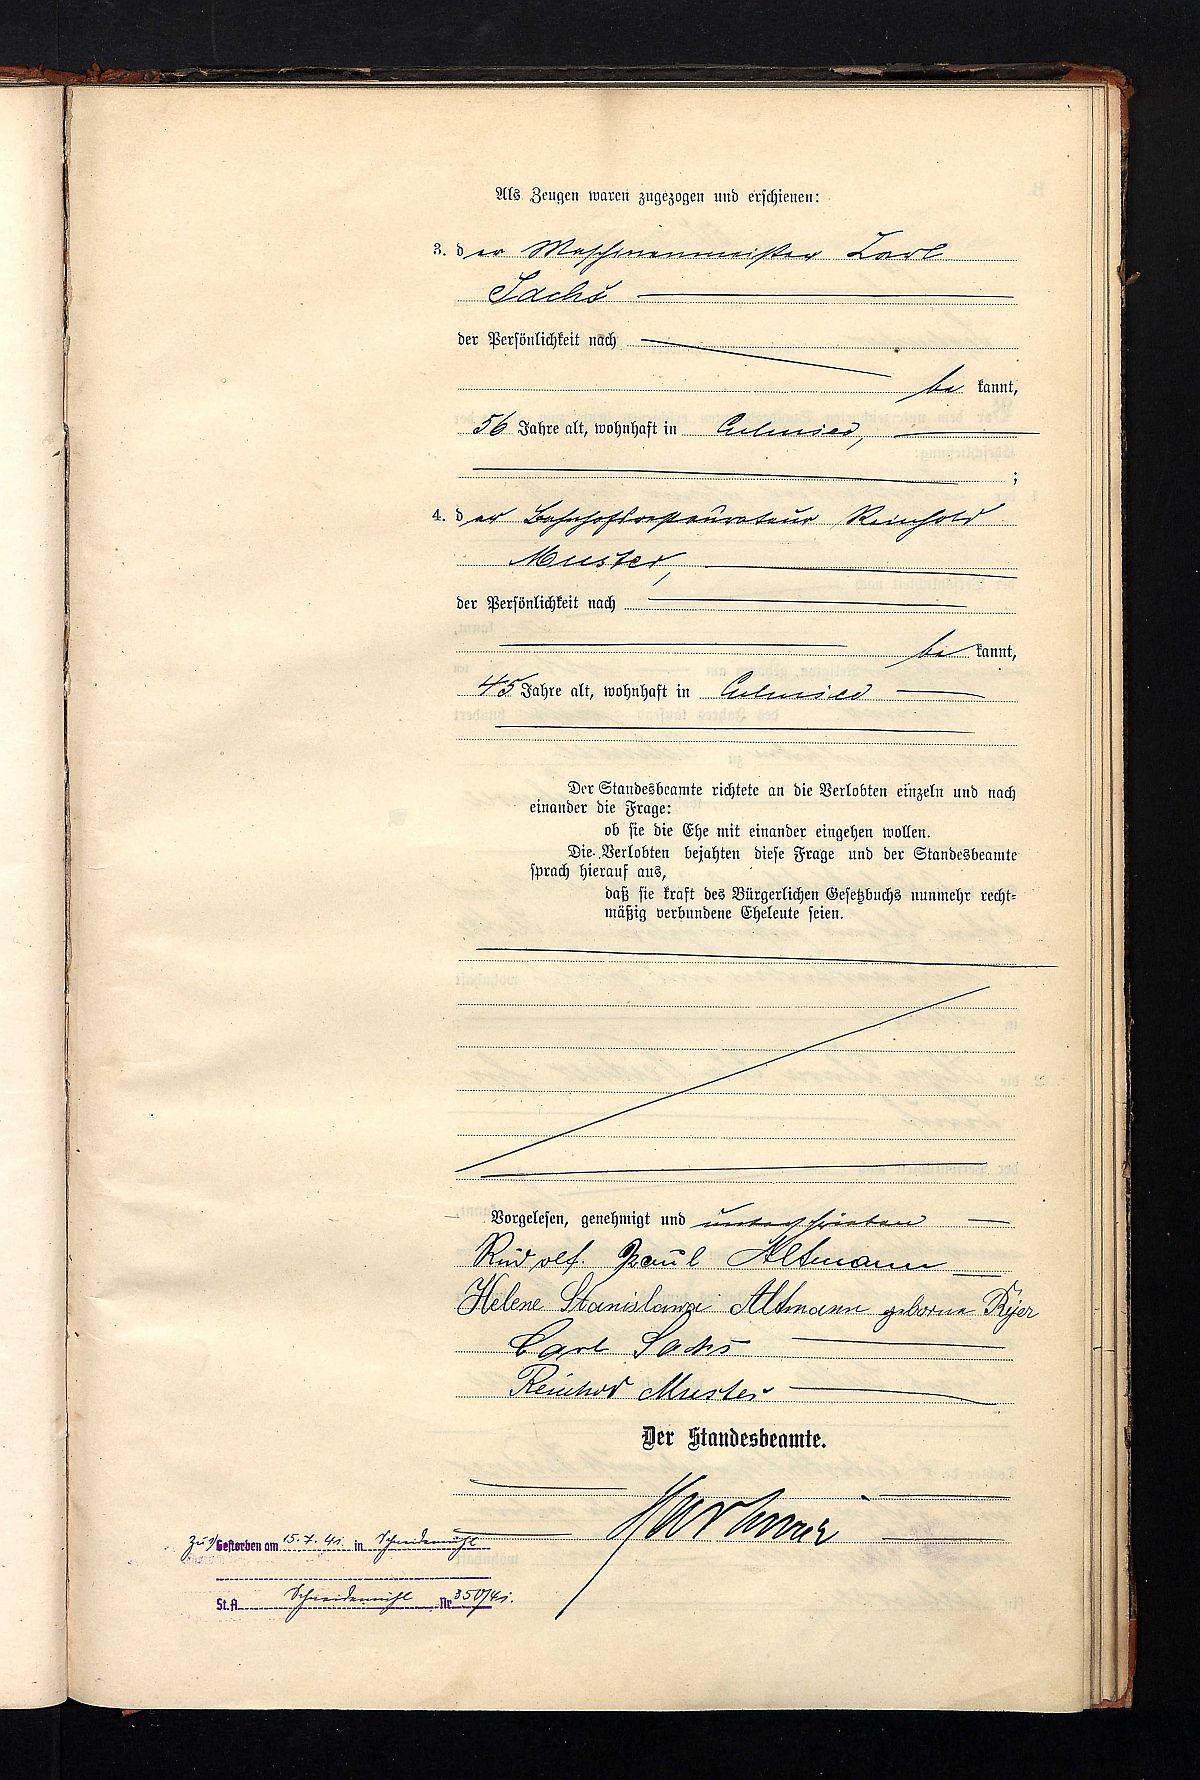 Als Zeugen waren zugezogen und erschienen:
3. der Maschinenmeister Carl
Sachs
der Persönlichkeit nach
bekannt,
56 Jahre alt, wohnhaft in Culmsee,
;
4. der Bahnhofsrestaurateur Reinhold
Muster,
der Persönlichkeit nach
bekannt,
45 Jahre alt, wohnhaft in Culmsee
Der Standesbeamte richtete an die Verlobten einzeln und nach
einander die Frage:
ob sie die Ehe mit einander eingehen wollen.
Die Verlobten bejahten diese Frage und der Standesbeamte
sprach hierauf aus,
daß sie kraft des Bürgerlichen Gesetzbuchs nunmehr recht=
mäßig verbundene Eheleute seien.
Vorgelesen, genehmigt und unterschrieben
Rudolf Paul Altmann
Helene Stanislawa Altmann geborne
Carl Sachs
Reinhold Muster
Der Standesbeamte.
Gestorben am 15.7.41. in Schneidemühl
St. A. Schneidemühl Nr. 350/41.